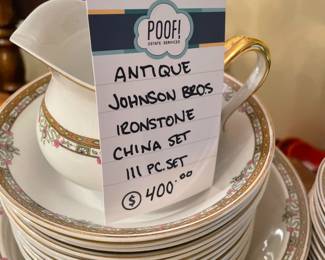 POOF!
ESTATE SERVICES
ANTIQUE
JOHNSON BROS
IRONSTONE
CHINA SET
111 PC. SET
$ 400.00